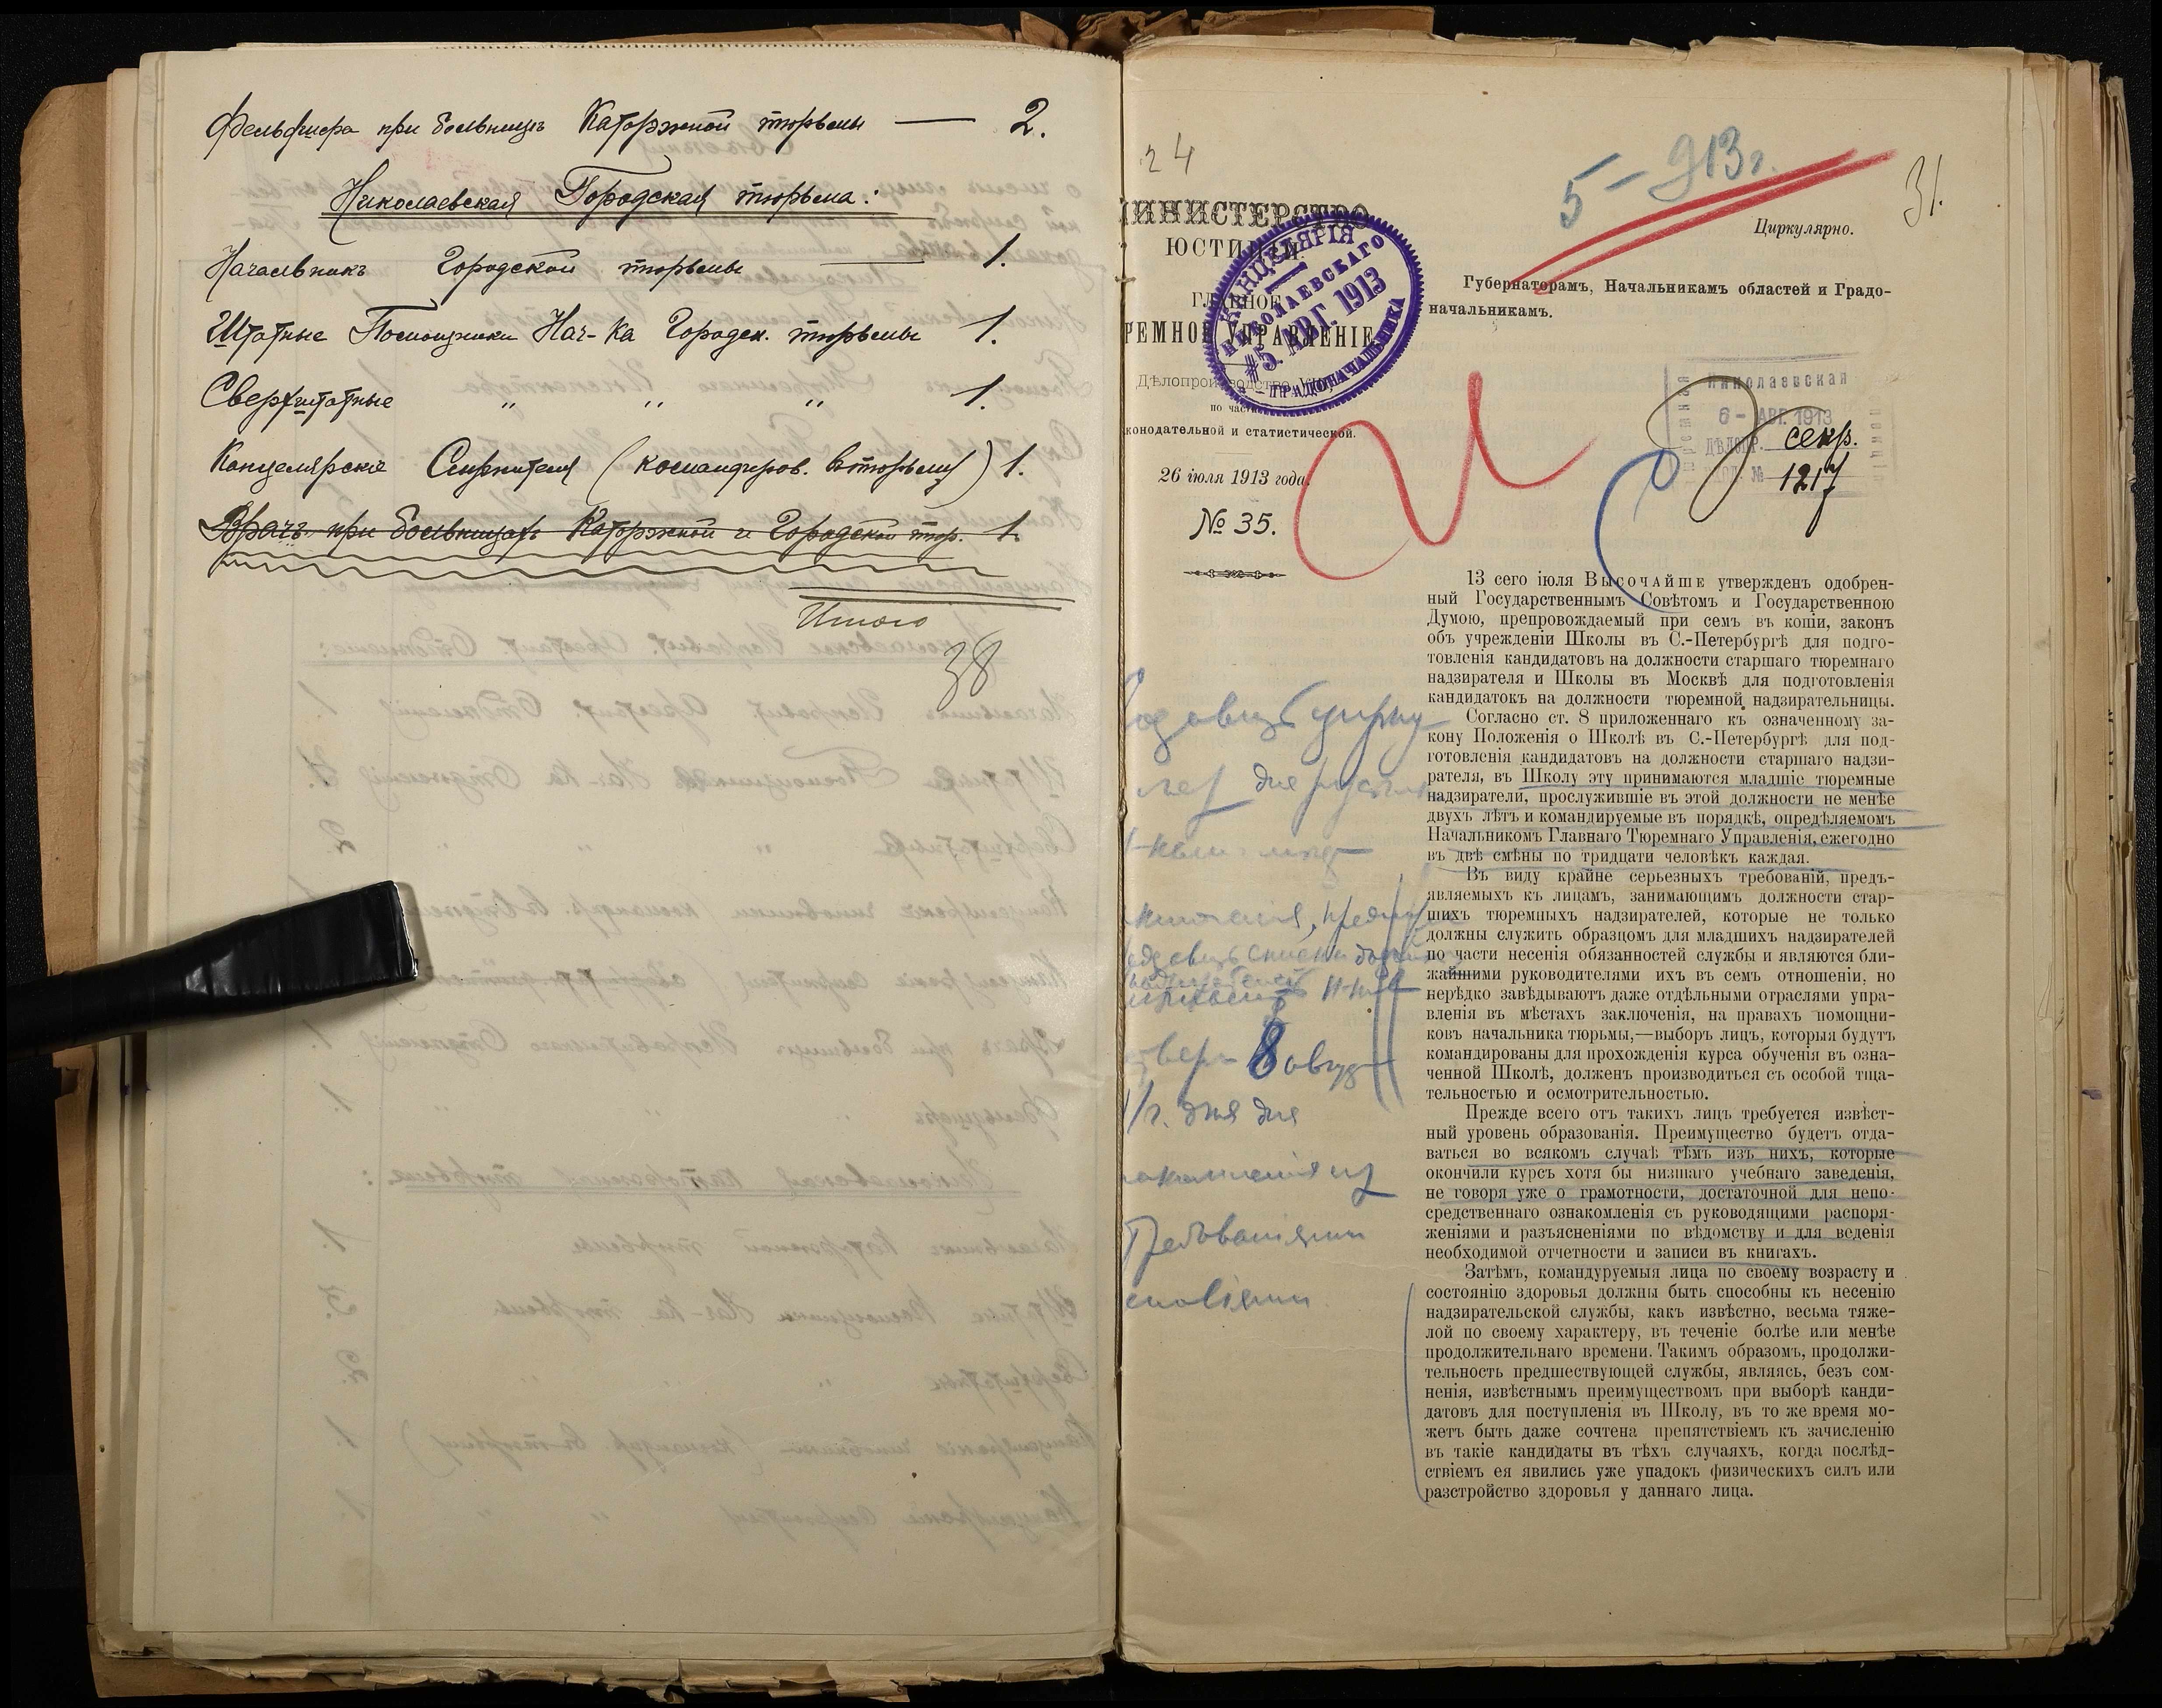 Фельдшера при больницѣ Каторжной тюрьмы — 2.
Николаевская Городская тюрьма:
Начальникъ Городской тюрьмы — 1.
Штатные Помощники Нач-ка Городск. тюрьмы 1.
Сверхштатные " " " 1.
Канцелярскіе Служителя (командиров. въ тюрьму) 1.
Врачъ при больницахъ Каторжной и Городской тюр. 1.
Итого
38
24
5 - 913 г.
31.
МИНИСТЕРСТВО
ЮСТИЦІИ.
ГЛАВНОЕ
РЕМНОЕ УПРАВЛЕНІЕ
Дѣлопроизводство
по части
конодательной и статистической.
26 іюля 1913 года.
№ 35.
КАНЦЕЛЯРІЯ
НИКОЛАЕВСКАГО
5. АВГ. 1913
ГРАДОНАЧАЛЬНИКА
Циркулярно.
Губернаторамъ, Начальникамъ областей и Градо-
начальникамъ.
Николаевская
6 - АВГ. 1913
ДѢЛОПР. секр.
№ 1217
13 сего іюля Высочайше утвержденъ одобрен-
ный Государственнымъ Совѣтомъ и Государственною
Думою, препровождаемый при семъ въ копіи, законъ
объ учрежденіи Школы въ С.-Петербургѣ для подго-
товленія кандидатовъ на должности старшаго тюремнаго
надзирателя и Школы въ Москвѣ для подготовленія
кандидатокъ на должности тюремной надзирательницы.
Согласно ст. 8 приложеннаго къ означенному за-
кону Положенія о Школѣ въ С.-Петербургѣ для под-
готовленія кандидатовъ на должности старшаго надзи-
рателя, въ Школу эту принимаются младшіе тюремные
надзиратели, прослужившіе въ этой должности не менѣе
двухъ лѣтъ и командируемые въ порядкѣ, опредѣляемомъ
Начальникомъ Главнаго Тюремнаго Управленія, ежегодно
въ двѣ смѣны по тридцати человѣкъ каждая.
Въ виду крайне серьезныхъ требованій, предъ-
являемыхъ къ лицамъ, занимающимъ должности стар-
шихъ тюремныхъ надзирателей, которые не только
должны служить образцомъ для младшихъ надзирателей
по части несенія обязанностей службы и являются бли-
жайшими руководителями ихъ въ семъ отношеніи, но
нерѣдко завѣдываютъ даже отдѣльными отраслями упра-
вленія въ мѣстахъ заключенія, на правахъ помощни-
ковъ начальника тюрьмы,—выборъ лицъ, которыя будутъ
командированы для прохожденія курса обученія въ озна-
ченной Школѣ, долженъ производиться съ особой тща-
тельностью и осмотрительностью.
Прежде всего отъ такихъ лицъ требуется извѣст-
ный уровень образованія. Преимущество будетъ отда-
ваться во всякомъ случаѣ тѣмъ изъ нихъ, которые
окончили курсъ хотя бы низшаго учебнаго заведенія,
не говоря уже о грамотности, достаточной для непо-
средственнаго ознакомленія съ руководящими распоря-
женіями и разъясненіями по вѣдомству и для веденія
необходимой отчетности и записи въ книгахъ.
Затѣмъ, командуруемыя лица по своему возрасту и
состоянію здоровья должны быть способны къ несенію
надзирательской службы, какъ извѣстно, весьма тяже-
лой по своему характеру, въ теченіе болѣе или менѣе
продолжительнаго времени. Такимъ образомъ, продолжи-
тельность предшествующей службы, являясь, безъ сом-
ненія, извѣстнымъ преимуществомъ при выборѣ канди-
датовъ для поступленія въ Школу, въ то же время мо-
жетъ быть даже сочтена препятствіемъ къ зачисленію
въ такіе кандидаты въ тѣхъ случаяхъ, когда послѣд-
ствіемъ ея явились уже упадокъ физическихъ силъ или
разстройство здоровья у даннаго лица.